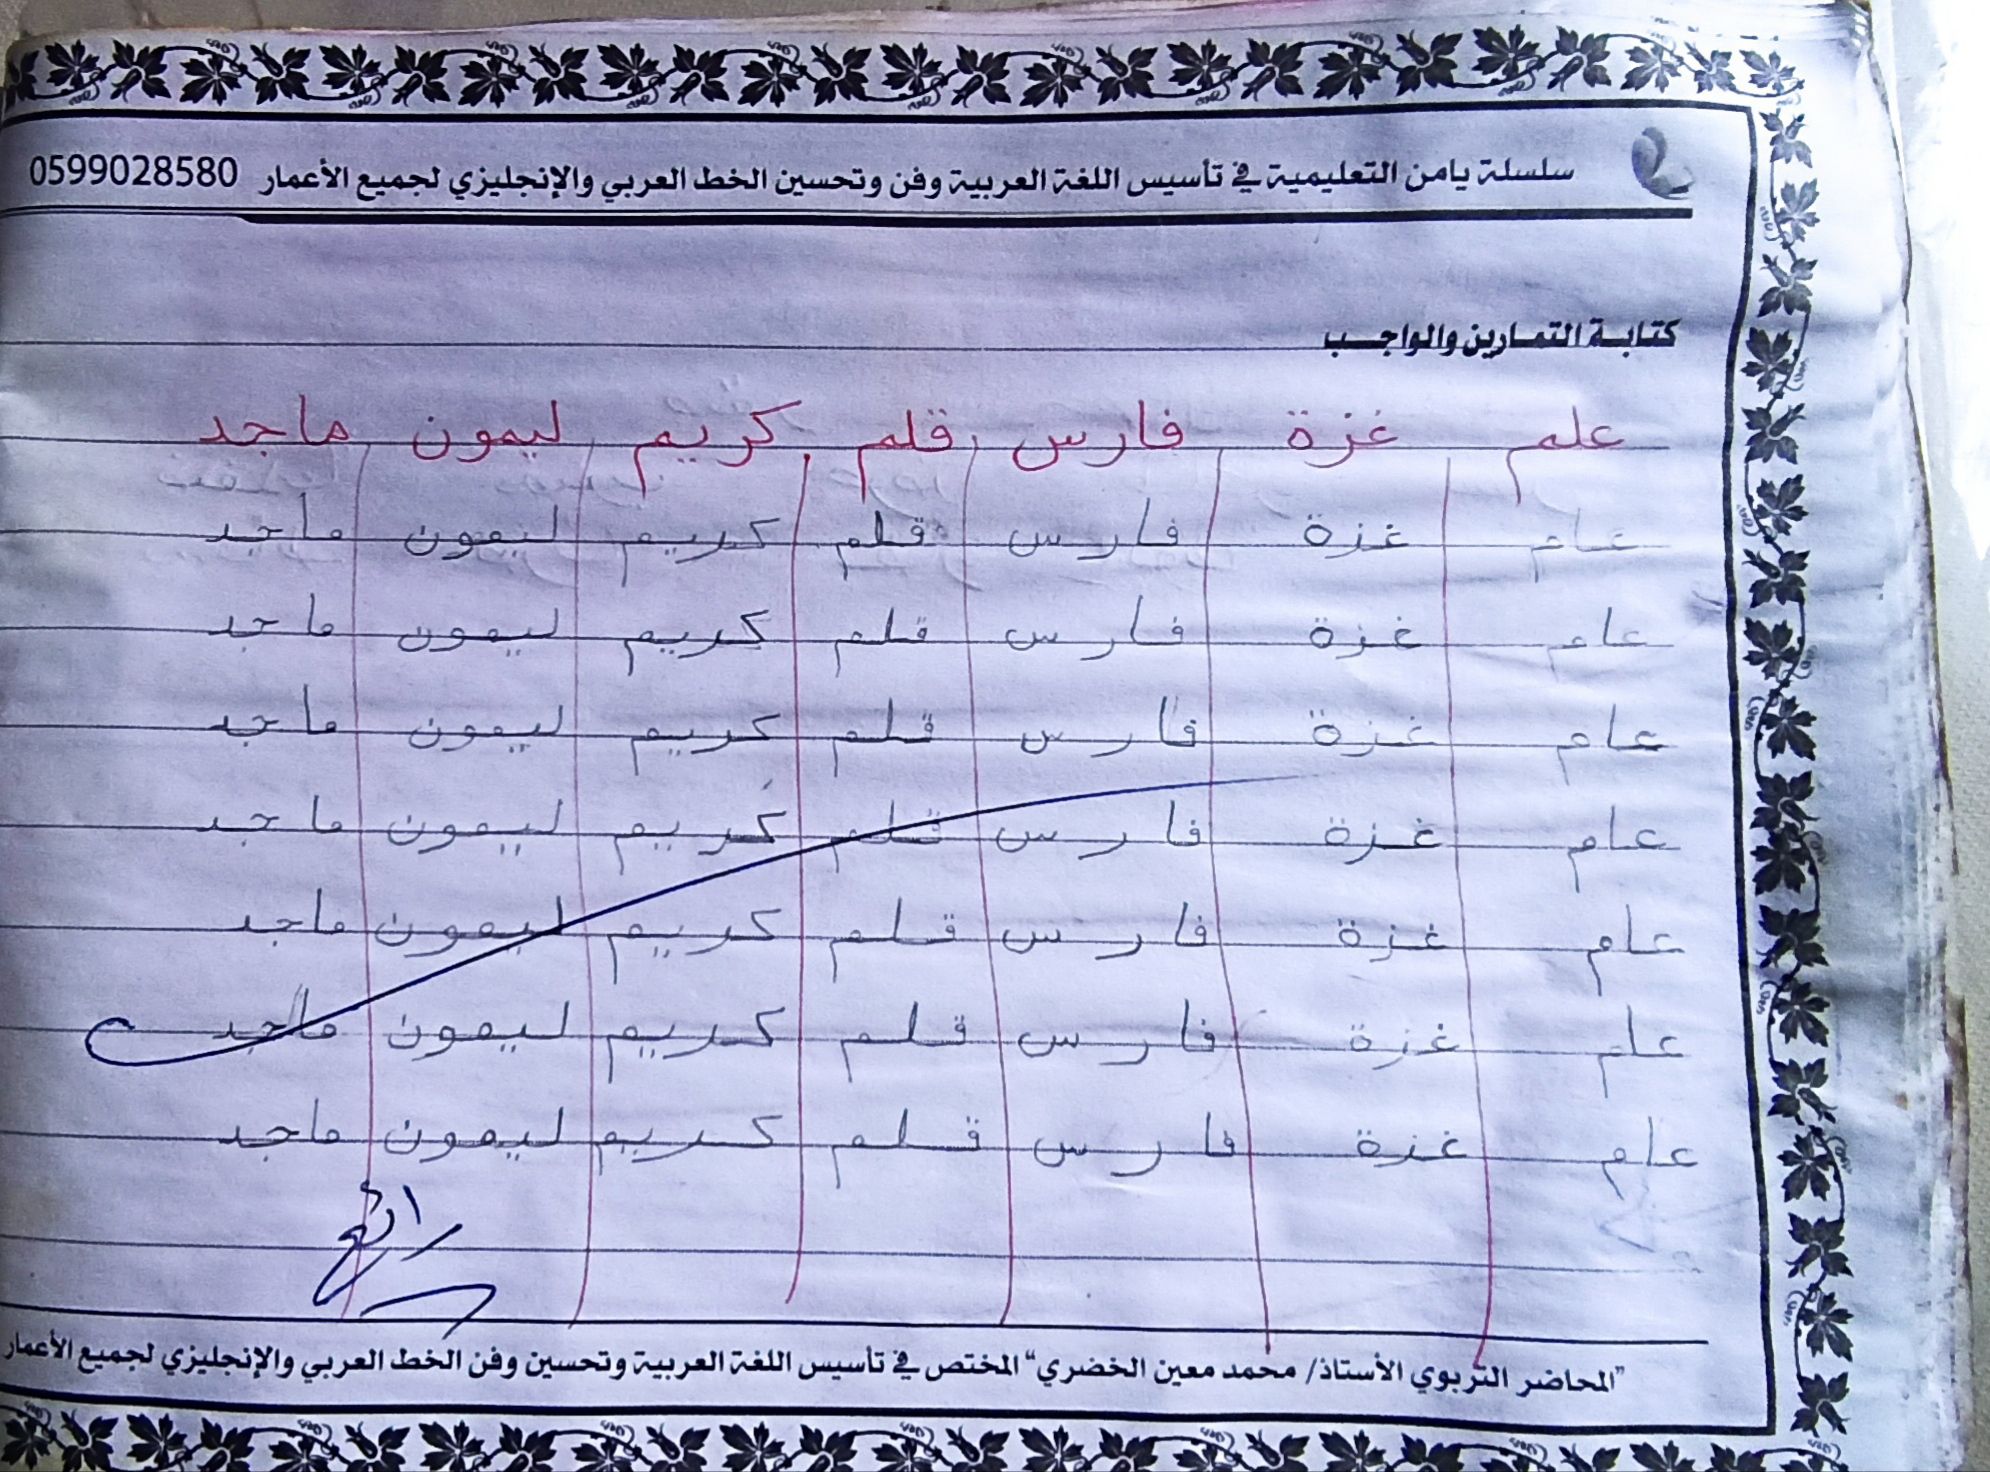 سلسلة يامن التعليمية في تأسيس اللغة العربية وفن وتحسين الخط العربي والإنجليزي لجميع الأعمار 0599028580
كتابة التمارين والواجب
علم غزة فارس قلم كريم ليمون ماجد
علم غزة فارس قلم كريم ليمون ماجد
علم غزة فارس قلم كريم ليمون ماجد
علم غزة فارس قلم كريم ليمون ماجد
علم غزة فارس قلم كريم ليمون ماجد
علم غزة فارس قلم كريم ليمون ماجد
علم غزة فارس قلم كريم ليمون ماجد
علم غزة فارس قلم كريم ليمون ماجد
رائع
"المحاضر التربوي الأستاذ/ محمد معين الخضري" المختص في تأسيس اللغة العربية وتحسين وفن الخط العربي والإنجليزي لجميع الأعمار